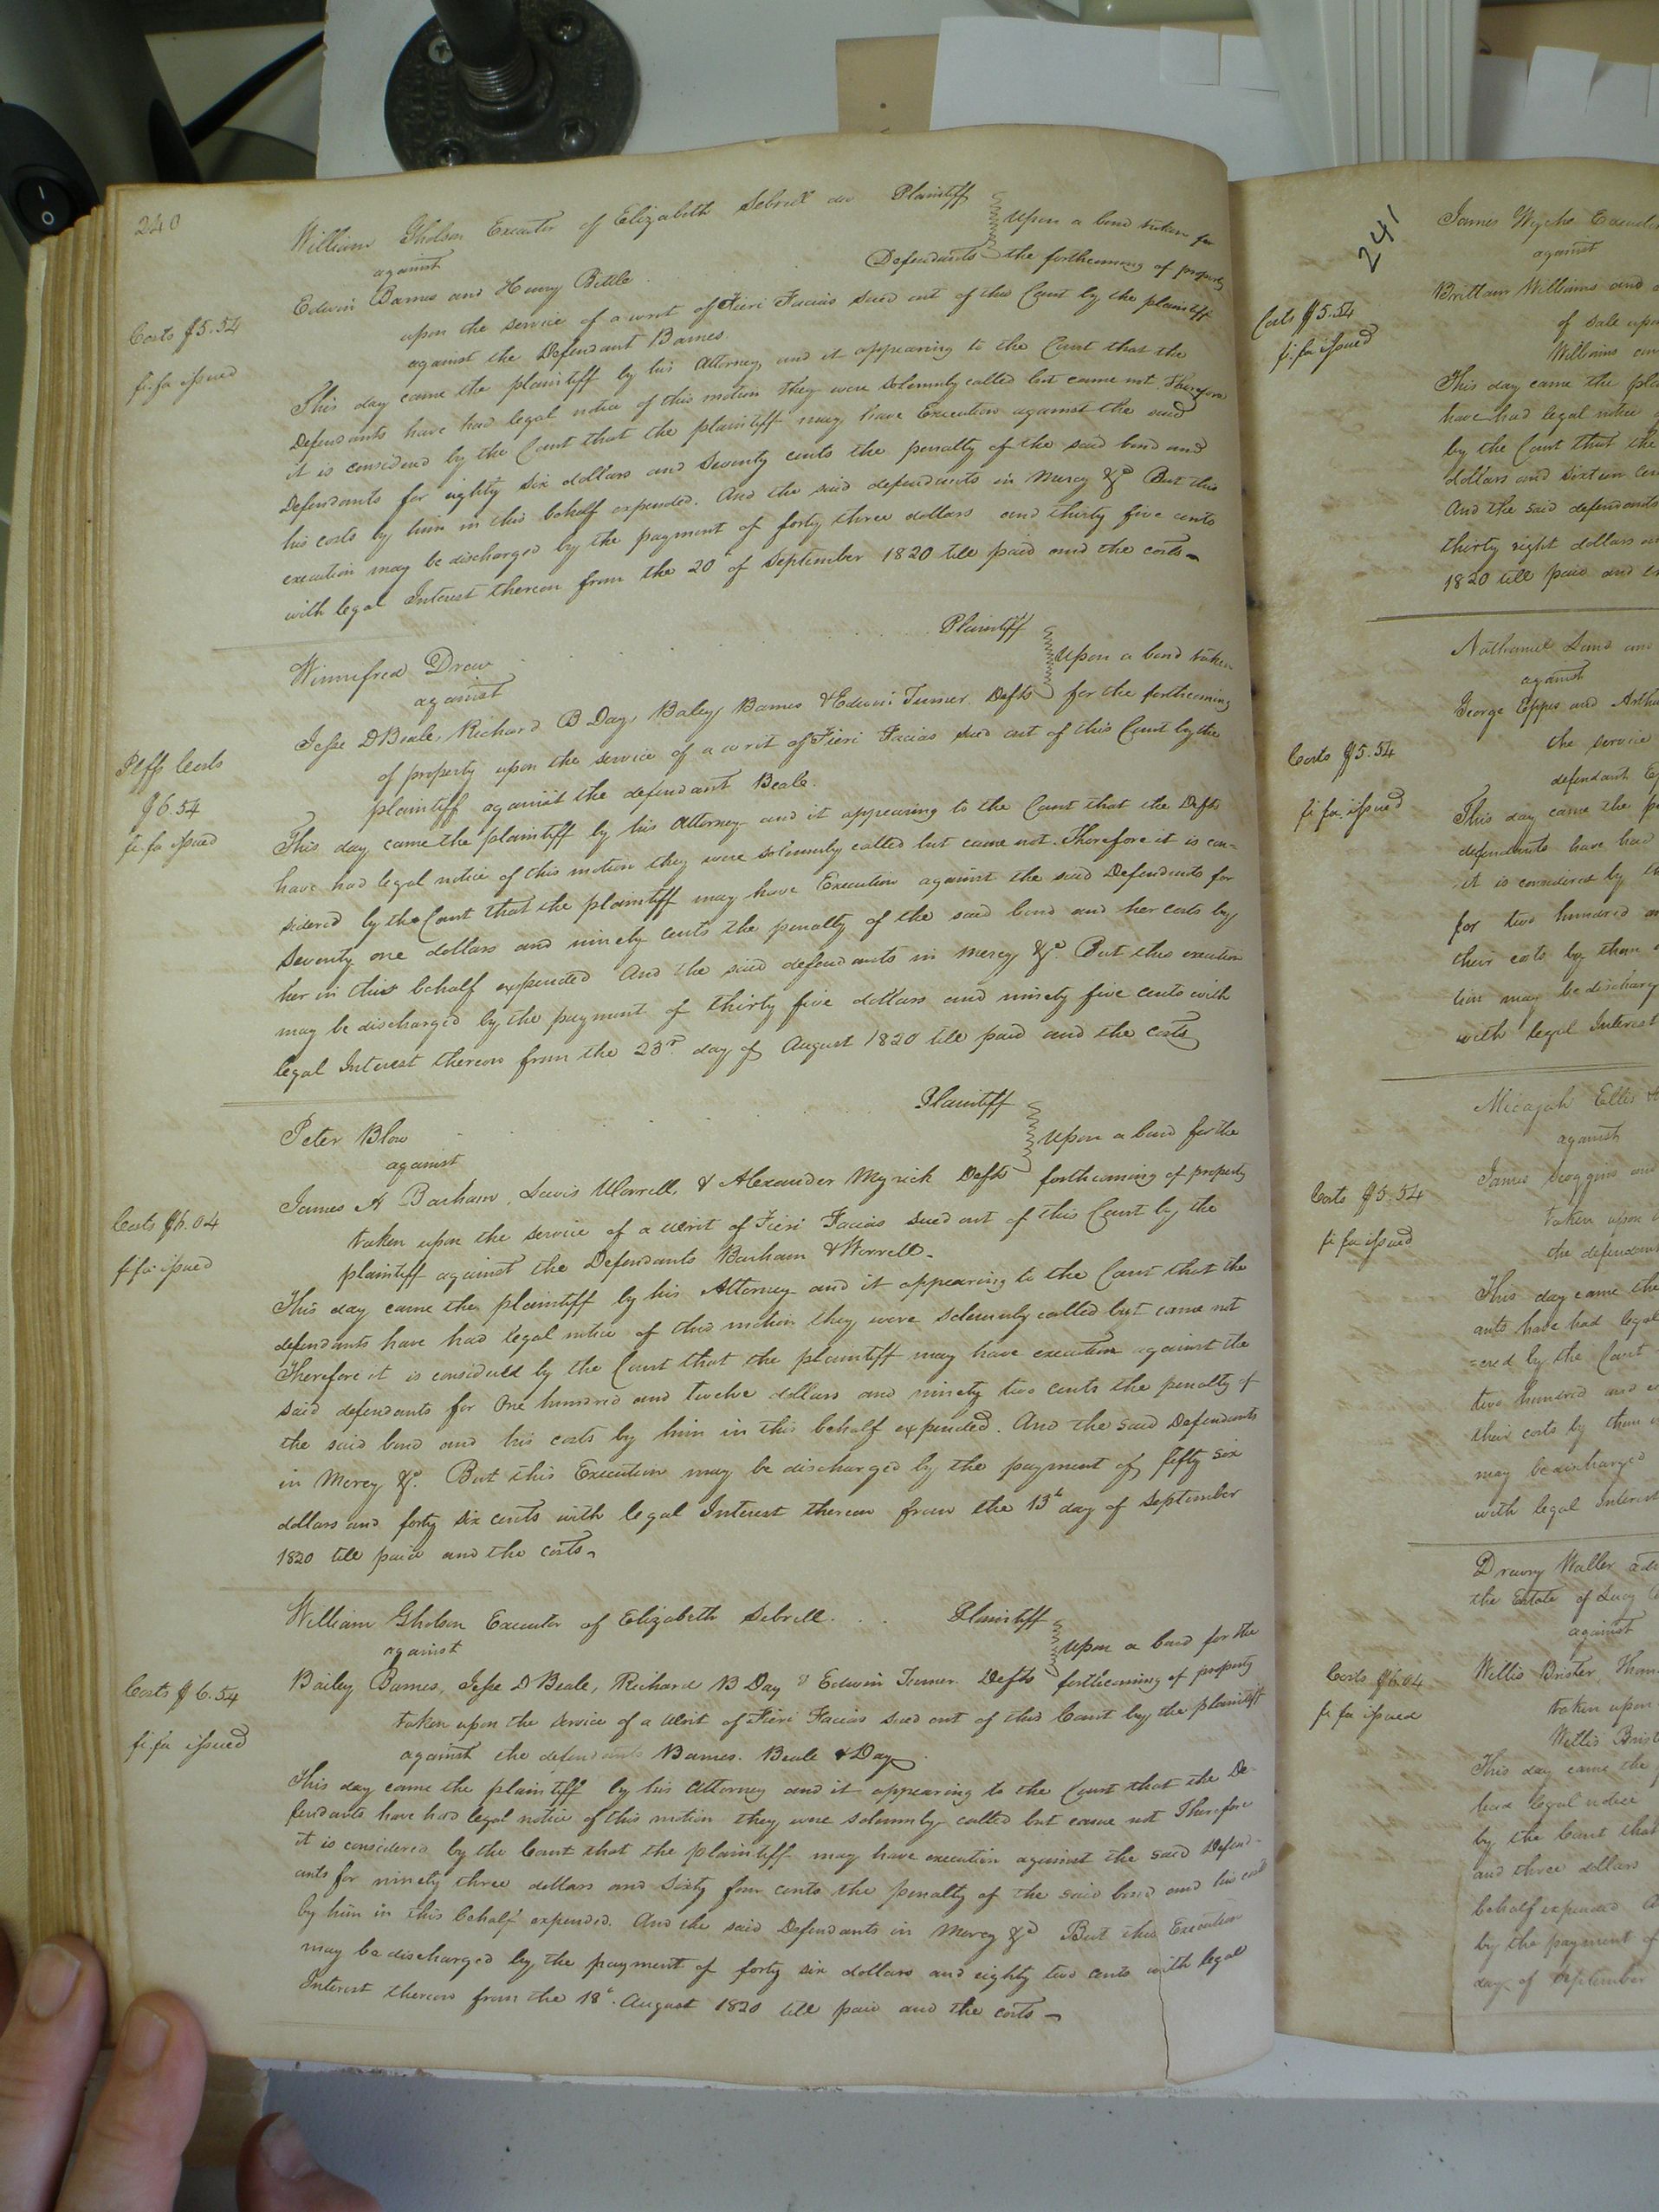 240
William Gholson Executor of Elizabeth Sebrell dec Plaintiff
against
Upon a bond taken for
Edwin Barnes and Henry Bittle . Defendants the forthcoming of property
upon the service of a writ of Fieri Facias sued out of this Court by the plaintiff
against the Defendant Barnes.
Costs $5.54
fi. fa issued
This day came the plaintiff by his Attorney and it appearing to the Court that the
Defendants have had legal notice of this motion they were solemnly called but came not Therefore
it is considered by the Court that the plaintiff may have Execution against the said
Defendants for eighty six dollars and seventy cents the penalty of the said bond and
his costs by him in this behalf expended. And the said defendants in Mercy &c But this
execution may be discharged by the payment of forty three dollars and thirty five cents
with legal Interest thereon from the 20th of September 1820 till paid and the costs
Winnifred Drew Plaintiff
against
Upon a bond taken
Jesse D Beale, Richard B Day, Baley Barnes & Edwin Turner Defts for the forthcoming
of property upon the service of a writ of Fieri Facias sued out of this Court by the
plaintiff against the defendant Beale.
Plffs Costs
$6.54
fi. fa issued
This day came the plaintiff by his Attorney and it appearing to the Court that the Defts
have had legal notice of this motion they were solemnly called but came not. Therefore it is con=
sidered by the Court that the plaintiff may have Execution against the said Defendants for
Seventy one dollars and ninety cents the penalty of the said bond and her costs by
her in this behalf expended And the said defendants in Mercy &c. But this execution
may be discharged by the payment of thirty five dollars and ninety five cents with
legal Interest thereon from the 23rd. day of August 1820 till paid and the costs
Peter Blow Plaintiff
against
Upon a bond for the
James A Barham, Lewis Worrell, & Alexander Myrick Defts forthcoming of property
taken upon the service of a writ of Fieri Facias sued out of this Court by the
plaintiff against the Defendants Barham & Worrell.
Costs $6.04
fi fa issued
This day came the plaintiff by his Attorney and it appearing to the Court that the
defendants have had legal notice of this motion they were solemnly called but came not
Therefore it is considered by the Court that the plaintiff may have execution against the
said defendants for One hundred and twelve dollars and ninety two cents the penalty of
the said bond and his costs by him in this behalf expended. And the said Defendants
in Mercy &c. But this Execution may be discharged by the payment of fifty six
dollars and forty six cents with legal Interest thereon from the 13th day of September
1820 till paid and the costs
William Gholson Executor of Elizabeth Sebrell. Plaintiff
against
Upon a bond for the
Bailey Barnes, Jesse D Beale, Richard B Day & Edwin Turner Defts forthcoming of property
taken upon the service of a Writ of Fieri Facias sued out of this Court by the plaintiff
against the defendants Barnes. Beale & Day
Costs $6.54
fi. fa issued
This day came the plaintiff by his Attorney and it appearing to the Court that the De-
fendants have had legal notice of this motion they were solemnly called but came not Therefore
it is considered by the Court that the plaintiff may have execution against the said Defend-
ants for ninety three dollars and sixty four cents the penalty of the said bond and his cost
by him in this behalf expended. And the said Defendants in Mercy &c But this Execution
may be discharged by the payment of forty six dollars and eighty two cents with legal
Interest thereon from the 18th. August 1820 till paid and the costs
241
James Wyche
against
Brittain Williams and
of sale upon
Williams
Costs $5.54
fi. fa issued
This day came the
have had legal notice
by the Court that the
dollars and sixteen
And the said defendants
thirty eight dollars
1820 till paid and
Nathaniel Land and
against
George Eppes and
the service
defendant
Costs $5.54
fi fa issued
This day came the
defendants have had
it is considered by
for two hundred
their costs by them
tion may be discharg
with legal Interest
Micajah Ellis
against
James Scoggins and
taken upon
the defendant
Costs $5.54
fi fa issued
This day came the
ants have had legal
=ered by the Court
two hundred and
their costs by them
may be discharged
with legal Interest
Drewry Waller
the Estate of Lucy
against
Willis Brister,
taken upon
Willis
Costs $6.04
fi fa issued
This day came the
have legal notice
by the Court that
and three dollars
behalf expended
by the payment of
day of September